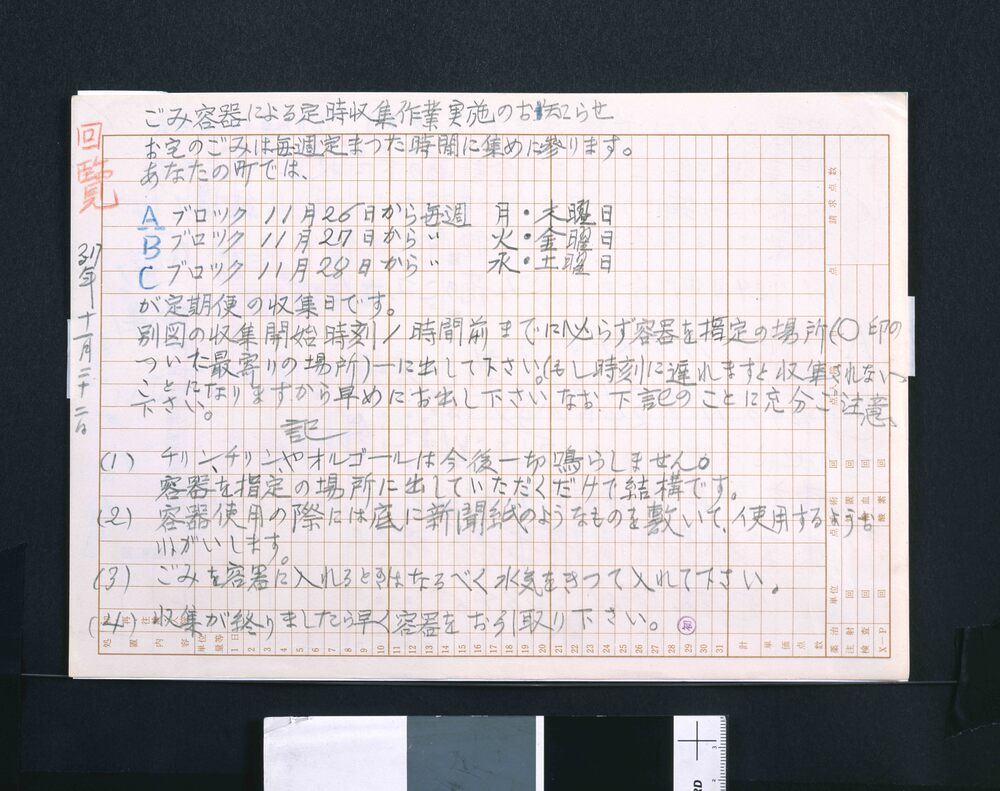 ごみ容器による定時収集作業実施のお知らせ
回覧
お宅のごみは毎週定まつた時間に集めに参ります。
あなたの町では、
A ブロック 11月26日から毎週 月・木曜日
B ブロック 11月27日から〃 火・金曜日
C ブロック 11月28日から〃 水・土曜日
が定期便の収集日です。
別図の収集開始時刻1時間前までに必らず容器を指定の場所(〇印の
ついた最寄りの場所)に出して下さい。(もし時刻に遅れますと収集されない
ことになりますから早めにお出し下さい なお、下記のことに充分ご注意
下さい。
記
(1) チリン、チリンやオルゴールは今後一切鳴らしません。
容器を指定の場所に出していただくだけで結構です。
(2) 容器使用の際には底に新聞紙のようなものを敷いて、使用するよう
ねがいします。
(3) ごみを容器に入れるときはなるべく水気をきつて入れて下さい。
(4) 収集が終りましたら早く容器をお引取り下さい。
年十一月二十二日
処置内容
単位
量等
日
1 2 3 4 5 6 7 8 9 10 11 12 13 14 15 16 17 18 19 20 21 22 23 24 25 26 27 28 29 30 31
計
単価
点数
請求点数
点
薬治 単位
注射 回 回
検査 回 回
X-P 回 酸素 回